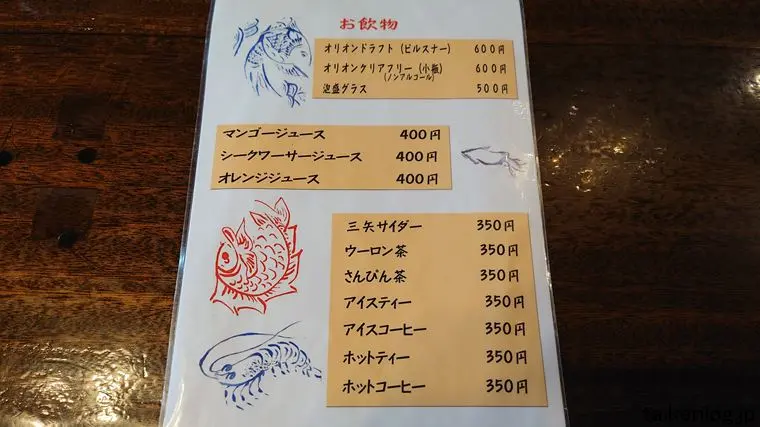 お飲物
オリオンドラフト（ピルスナー） 600円
オリオンクリアフリー（小瓶） 600円
（ノンアルコール）
泡盛グラス 500円
マンゴージュース 400円
シークワーサージュース 400円
オレンジジュース 400円
三矢サイダー 350円
ウーロン茶 350円
さんぴん茶 350円
アイスティー 350円
アイスコーヒー 350円
ホットティー 350円
ホットコーヒー 350円